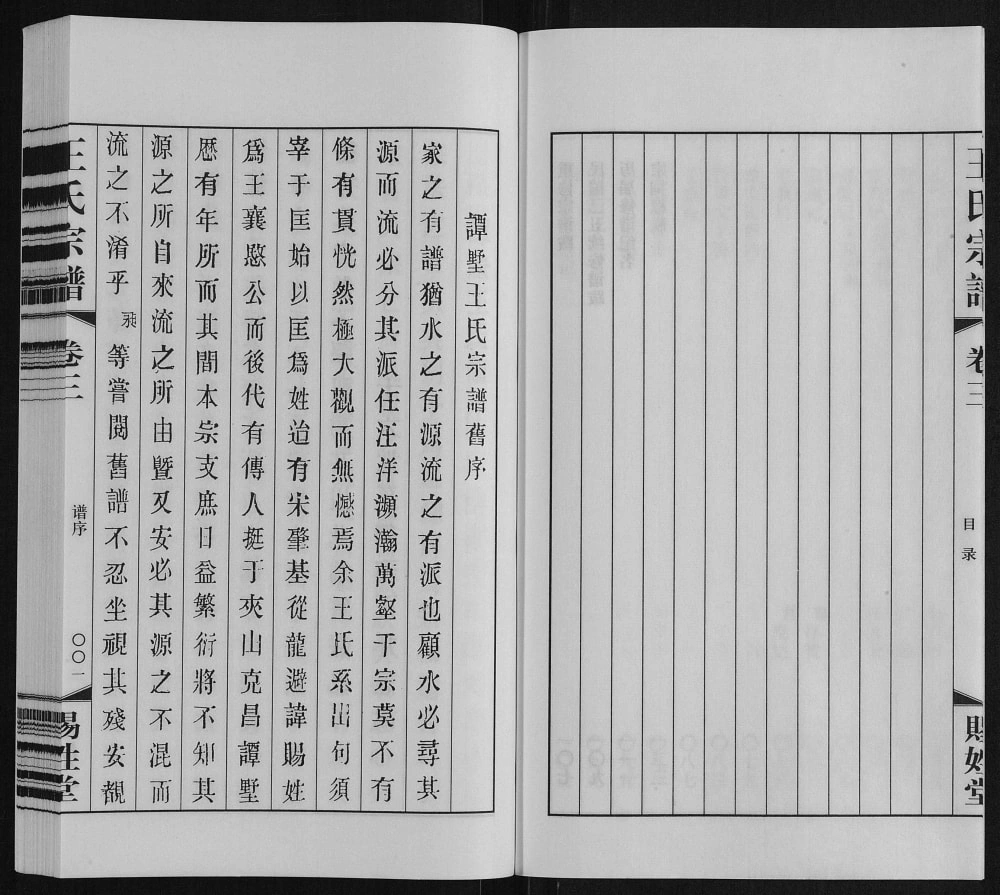 王氏宗譜
卷三
目录
賜姓堂
譚墅王氏宗譜舊序
家之有譜猶水之有源流之有派也顧水必尋其
源而流必分其派任汪洋瀕瀚萬壑千宗莫不有
條有貫恍然極大觀而無憾焉余王氏系出何須
宰于匡始以匡爲姓迨有宋肇基從龍避諱賜姓
爲王襄愍公而後代有傳人挺于夾山克昌譚墅
歷有年所而其間本宗支庶日益繁衍將不知其
源之所自來流之所由暨又安必其源之不混而
流之不淆乎 等嘗閱舊譜不忍坐視其殘安覩
王氏宗譜
卷三
谱序
〇〇一
賜姓堂